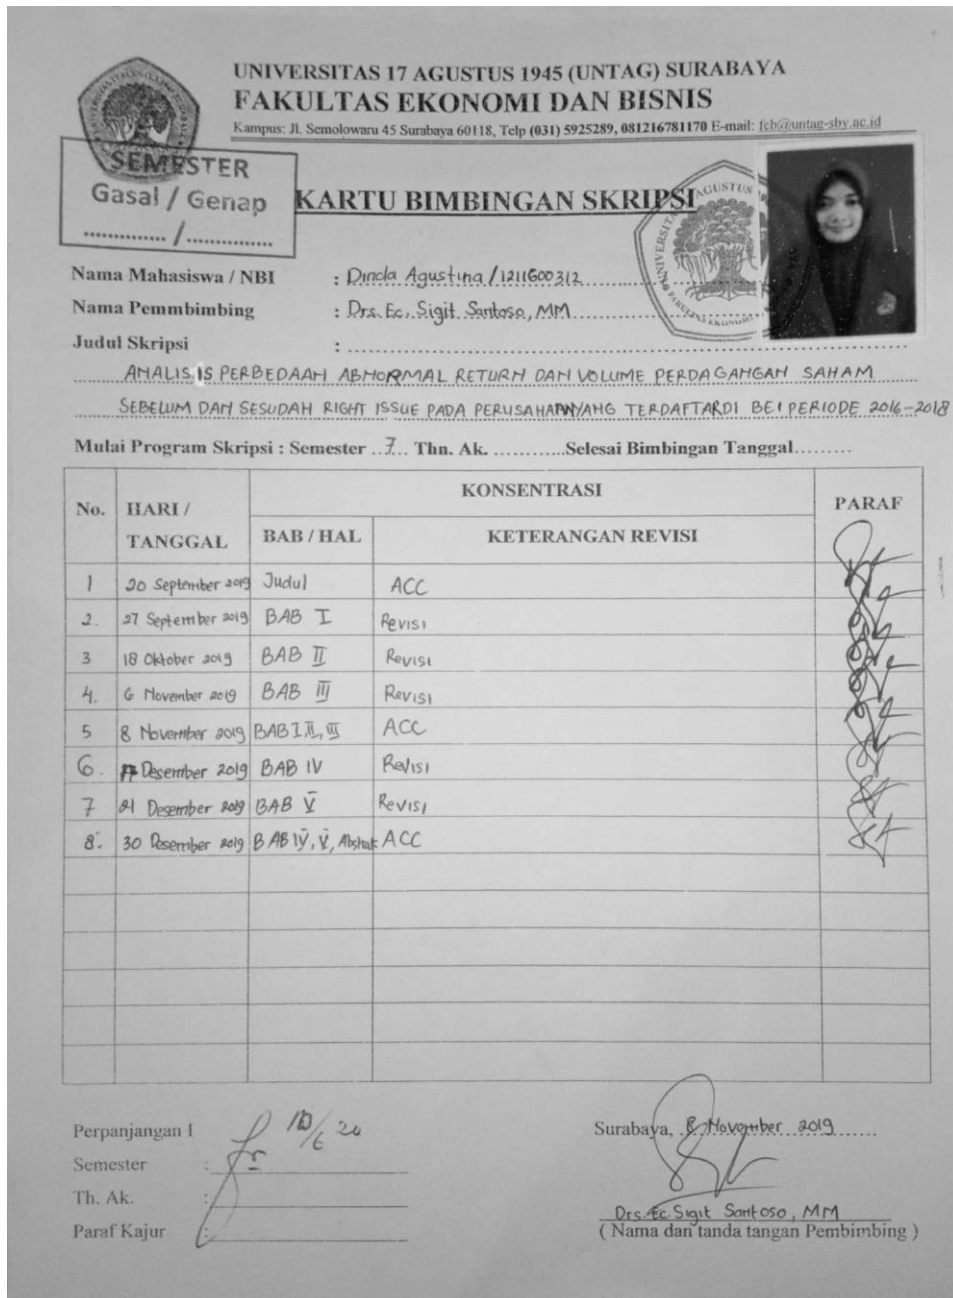 UNIVERSITAS 17 AGUSTUS 1945 (UNTAG) SURABAYA
FAKULTAS EKONOMI DAN BISNIS
Kampus: Jl. Semolowaru 45 Surabaya 60118, Telp (031) 5925289, 081216781170 E-mail: feb@untag-sby.ac.id
SEMESTER
Gasal / Genap
............. / ..............
KARTU BIMBINGAN SKRIPSI
Nama Mahasiswa / NBI : Dinda Agustina / 1211600312
Nama Pemmbimbing : Drs. Ec. Sigit Santoso, MM
Judul Skripsi :
ANALISIS PERBEDAAN ABNORMAL RETURN DAN VOLUME PERDAGANGAN SAHAM
SEBELUM DAN SESUDAH RIGHT ISSUE PADA PERUSAHAANYANG TERDAFTARDI BEI PERIODE 2016-2018
Mulai Program Skripsi : Semester ..7.. Thn. Ak. ............Selesai Bimbingan Tanggal.........
No. HARI / TANGGAL KONSENTRASI PARAF
BAB / HAL KETERANGAN REVISI
1 20 September 2019 Judul ACC
2. 27 September 2019 BAB I Revisi
3 18 Oktober 2019 BAB II Revisi
4. 6 November 2019 BAB III Revisi
5 8 November 2019 BAB I, II, III ACC
6. Desember 2019 BAB IV Revisi
7 21 Desember 2019 BAB V Revisi
8. 30 Desember 2019 BAB IV, V, Abstrak ACC
Perpanjangan I
Semester :
Th. Ak. :
Paraf Kajur :
Surabaya, 8 November 2019
Drs. Ec. Sigit Santoso, MM
( Nama dan tanda tangan Pembimbing )